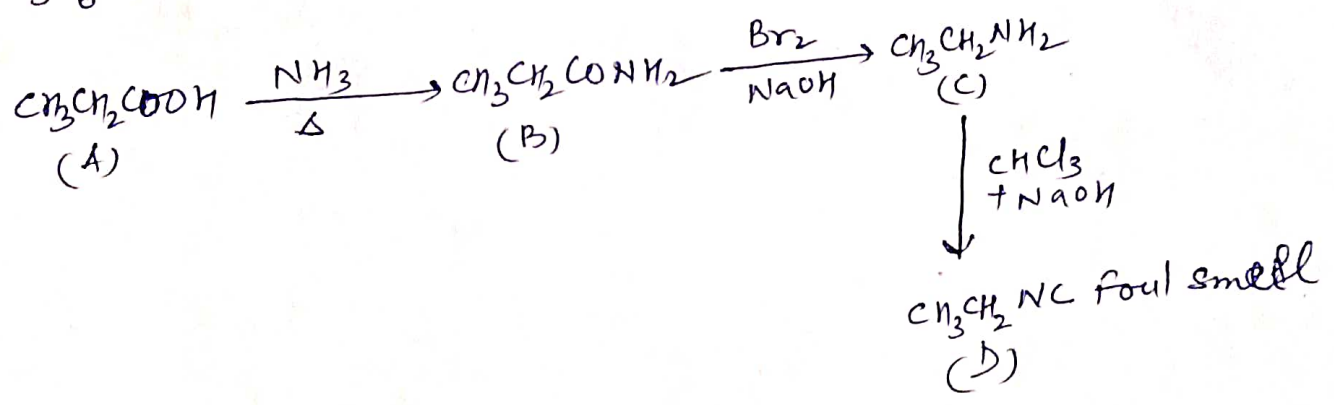 CH₃CH₂COOH NH₃ Δ CH₃CH₂CONH₂ Br₂ NaOH CH₃CH₂NH₂
(A) (B) (C)
CHCl₃
+ NaOH
CH₃CH₂NC Foul smell
(D)